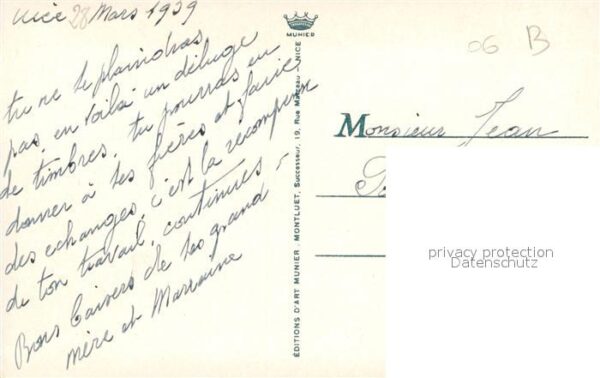 Nice 28 Mars 1939
tu ne te plaindras
pas, en voilà un déluge
de timbres, tu pourras en
donner à tes frères et faire
des echanges, c'est la recompense
de ton travail, continues -
Bons baisers de ta grand-
mère et Marraine
MUNIER
ÉDITIONS D'ART MUNIER - MONTLUET, Successeur, 19, Rue Marceau - NICE
06 B
Monsieur Jean
privacy protection
Datenschutz